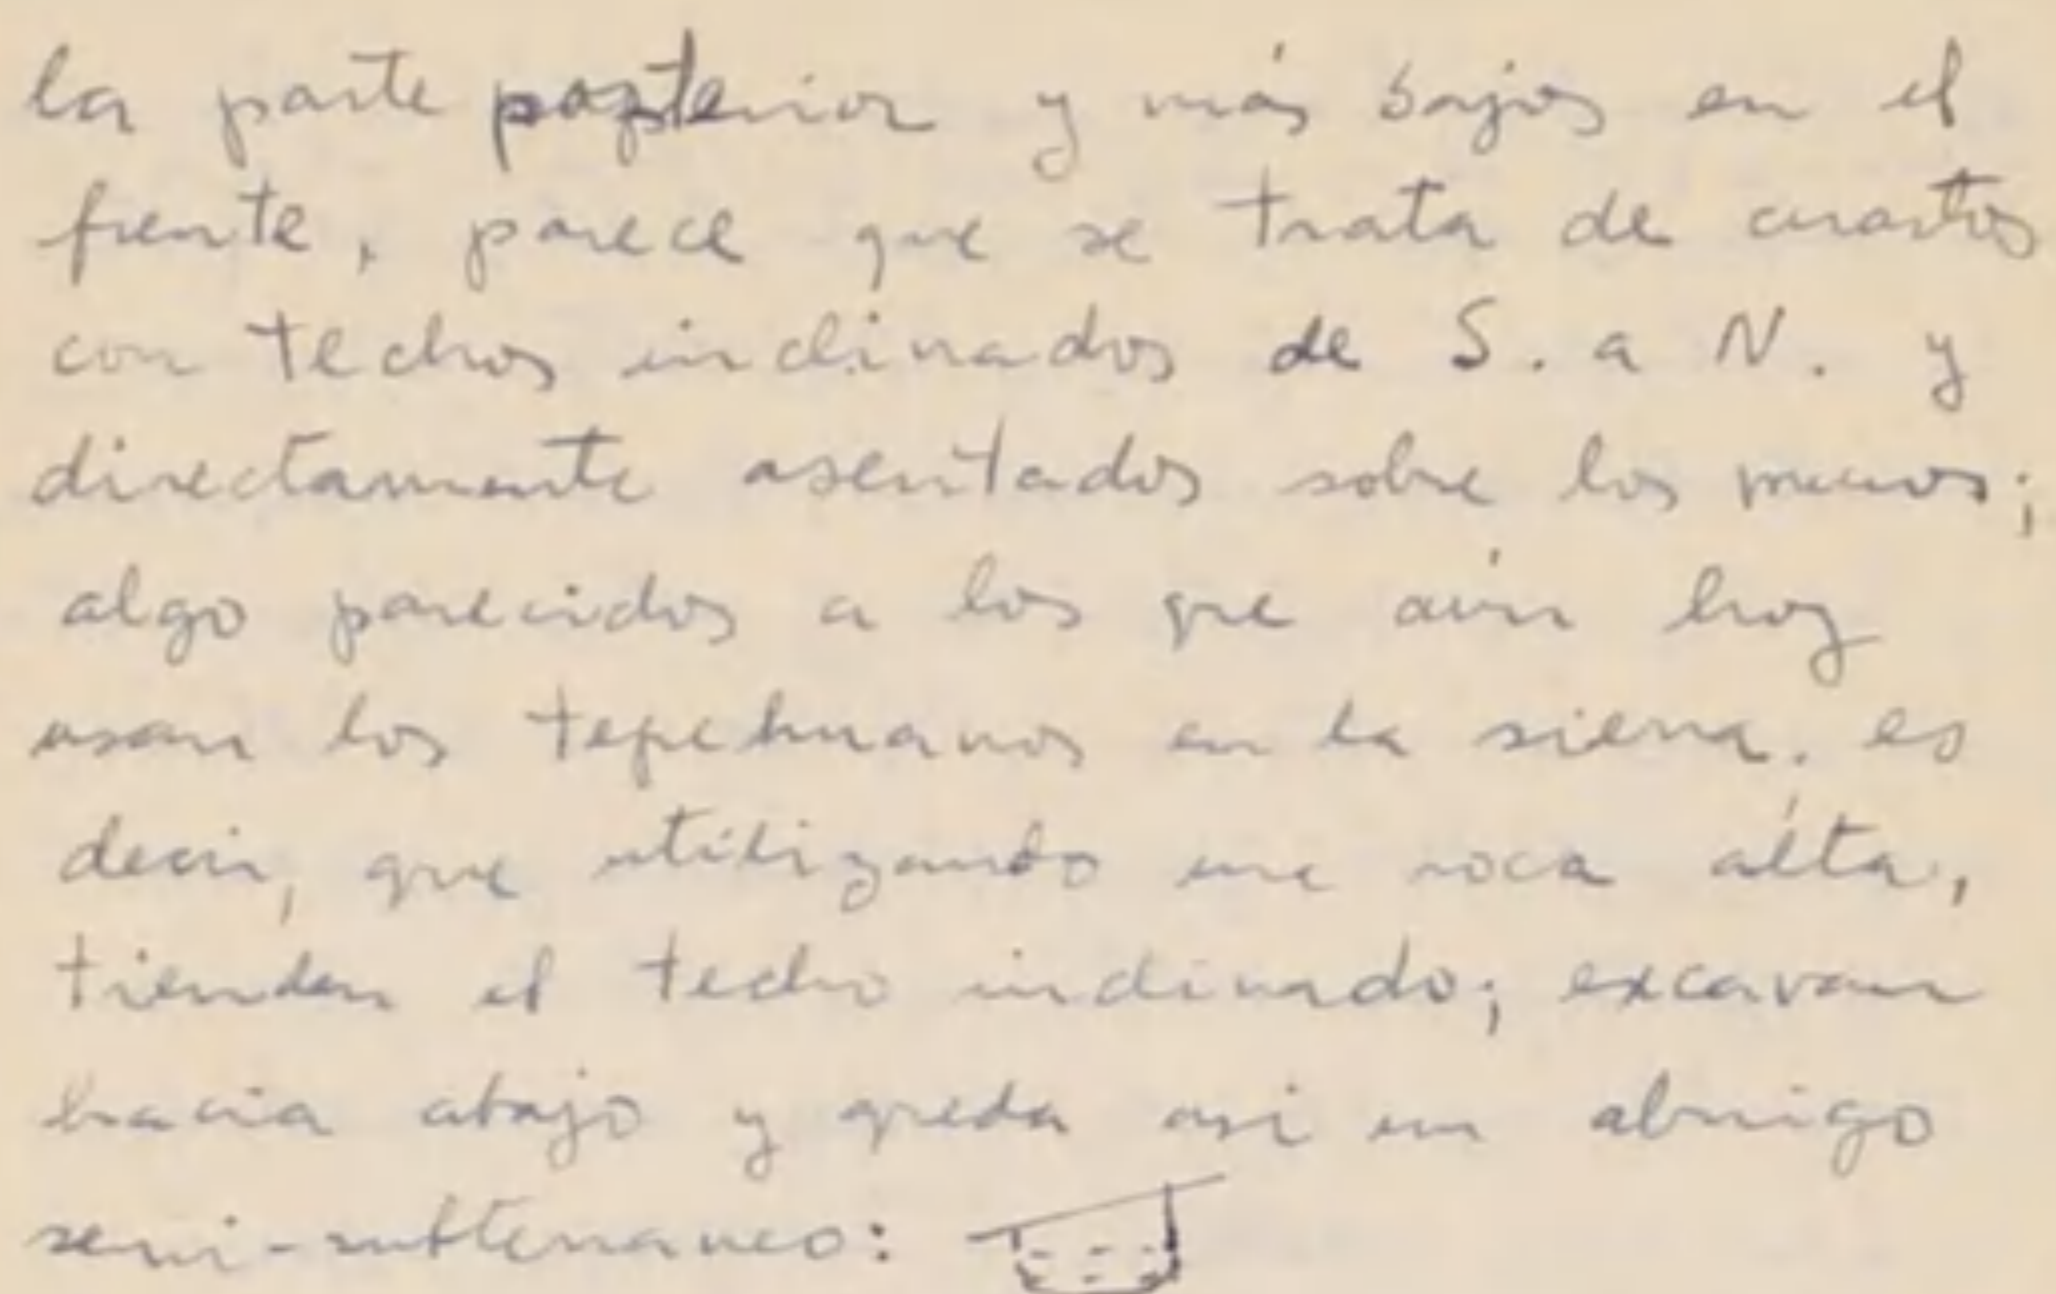 la parte posterior y más bajos en el
frente, parece que se trata de cuartos
con techos inclinados de S. a N. y
directamente asentados sobre los muros;
algo parecidos a los que aún hoy
usan los tepehuanos en la sierra. es
decir, que utilizando una roca alta,
tienden el techo inclinado; excavan
hacia abajo y queda asi un abrigo
semi-subterraneo: